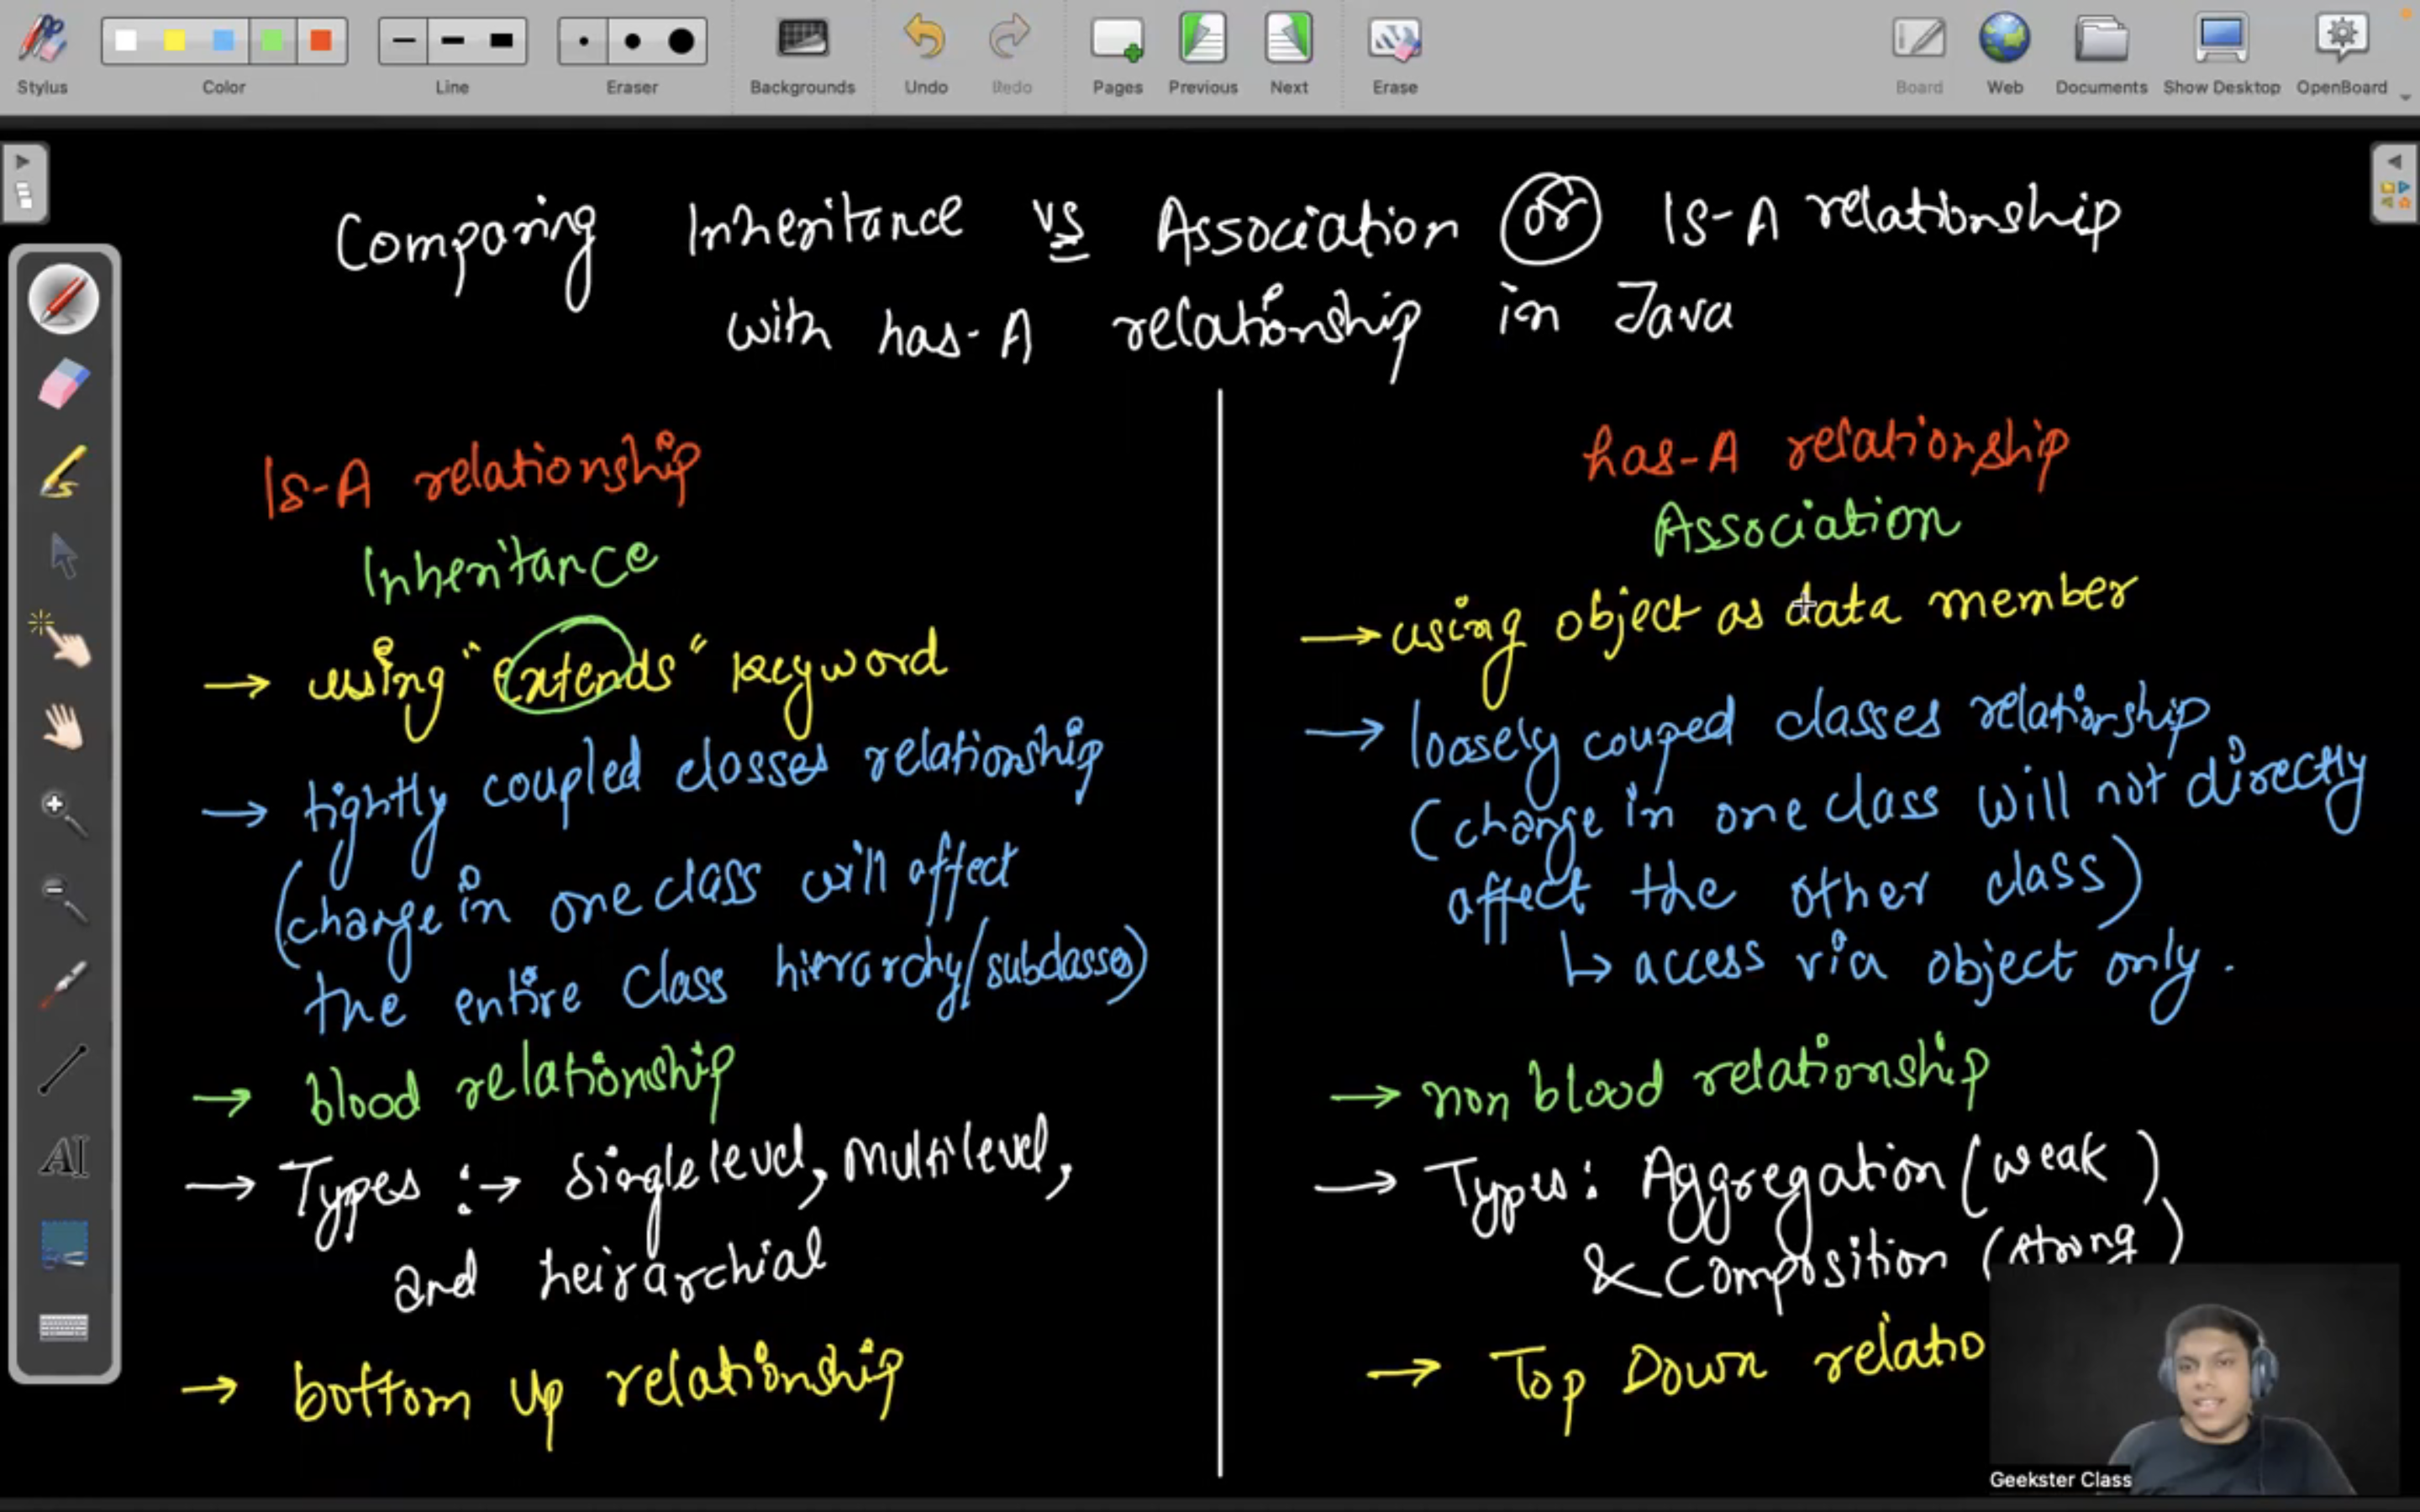 Stylus
Color
Line
Eraser
Backgrounds
Undo
Redo
Pages
Previous
Next
Erase
Board
Web
Documents
Show Desktop
OpenBoard
Comparing Inheritance vs Association or Is-A relationship
with has-A relationship in Java
Is-A relationship
Inheritance
→ using "extends" keyword
→ tightly coupled classes relationship
(change in one class will affect
the entire class hierarchy/subclasses)
→ blood relationship
→ Types :→ Single level, Multilevel,
and heirarchial
→ bottom up relationship
has-A relationship
Association
→ using object as data member
→ loosely couped classes relationship
(change in one class will not directly
affect the other class)
↳ access via object only.
→ non blood relationship
→ Types: Aggregation (weak)
& Composition (strong)
→ Top Down relatio
AI
Geekster Class